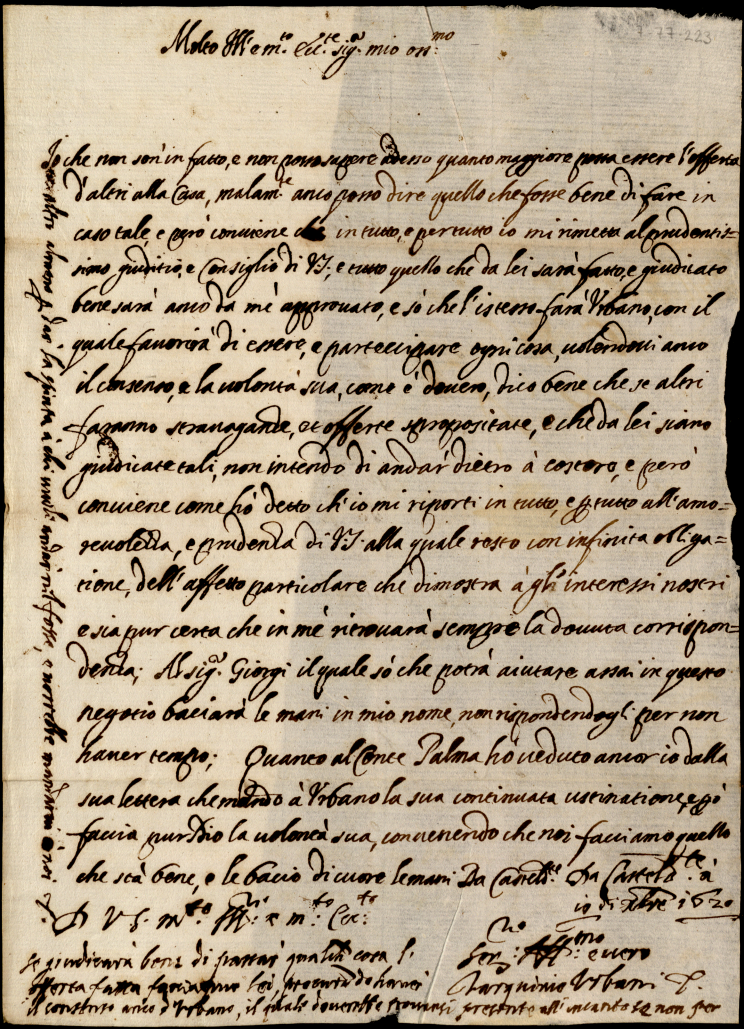 Molto Ill.e m.to Ecc.te sig.r mio oss.mo
Io che non son' in fatto, e non posso sapere adesso quanto maggiore possa essere l'offerta
d'altri alla Casa, malam.te anco posso dire quello che fosse bene di fare in
caso tale, e però conviene che in tutto, e per tutto io mi rimetta al prudentis=
simo giuditio, e Consiglio di V.S.; e tutto quello che da lei sarà fatto, e giudicato
bene sarà anco da mè approvato, e sò che l'istesso farà Urbano, con il
quale favorirà di essere, e partecipare ogni cosa, volendovi anco
il consenso, e la volontà sua, come è dovero, dico bene che se altri
faranno stravaganze, et offerte spropositate, e che da lei siano
giudicate tali, non intendo di andar dietro à costoro, e però
conviene come hò detto ch'io mi riporti in tutto, e p tutto all'amo=
revolezza, e prudenza di V.S. alla quale resto con infinita obliga=
tione, dell'affetto particolare che dimostra à gl'interessi nostri
e sia pur certa che in mè ritrovarà sempre la dovuta corrispon=
denza; Al sig.r Giorgi il quale sò che potrà aiutare assai in questo
negotio baciarà le mani in mio nome, non rispondendogli per non
haver tempo; Quanto al Conte Palma hò veduto ancor io dalla
sua lettera che mandò à Urbano la sua continuata ustinatione, e pò
faccia pur Dio la volontà sua, convenendo che noi facciamo quello
che stà bene, e le bacio di cuore le mani Da Casteld.te à
io di Xbre 1620
D V.S. m.to Ill.re e m.to Ecc.te
Ser.re Aff.mo e vero
Tarquinio Urbani
se giudicarà bene di passar qualch cosa l'
offerta fatta facciamo lei, procurando haver
il consenso anco d'Urbano, il quale doverebbe trovarsi presente all'incanto se non per
altro almeno p dar la spinta à chi vuol andar nel fosso, e